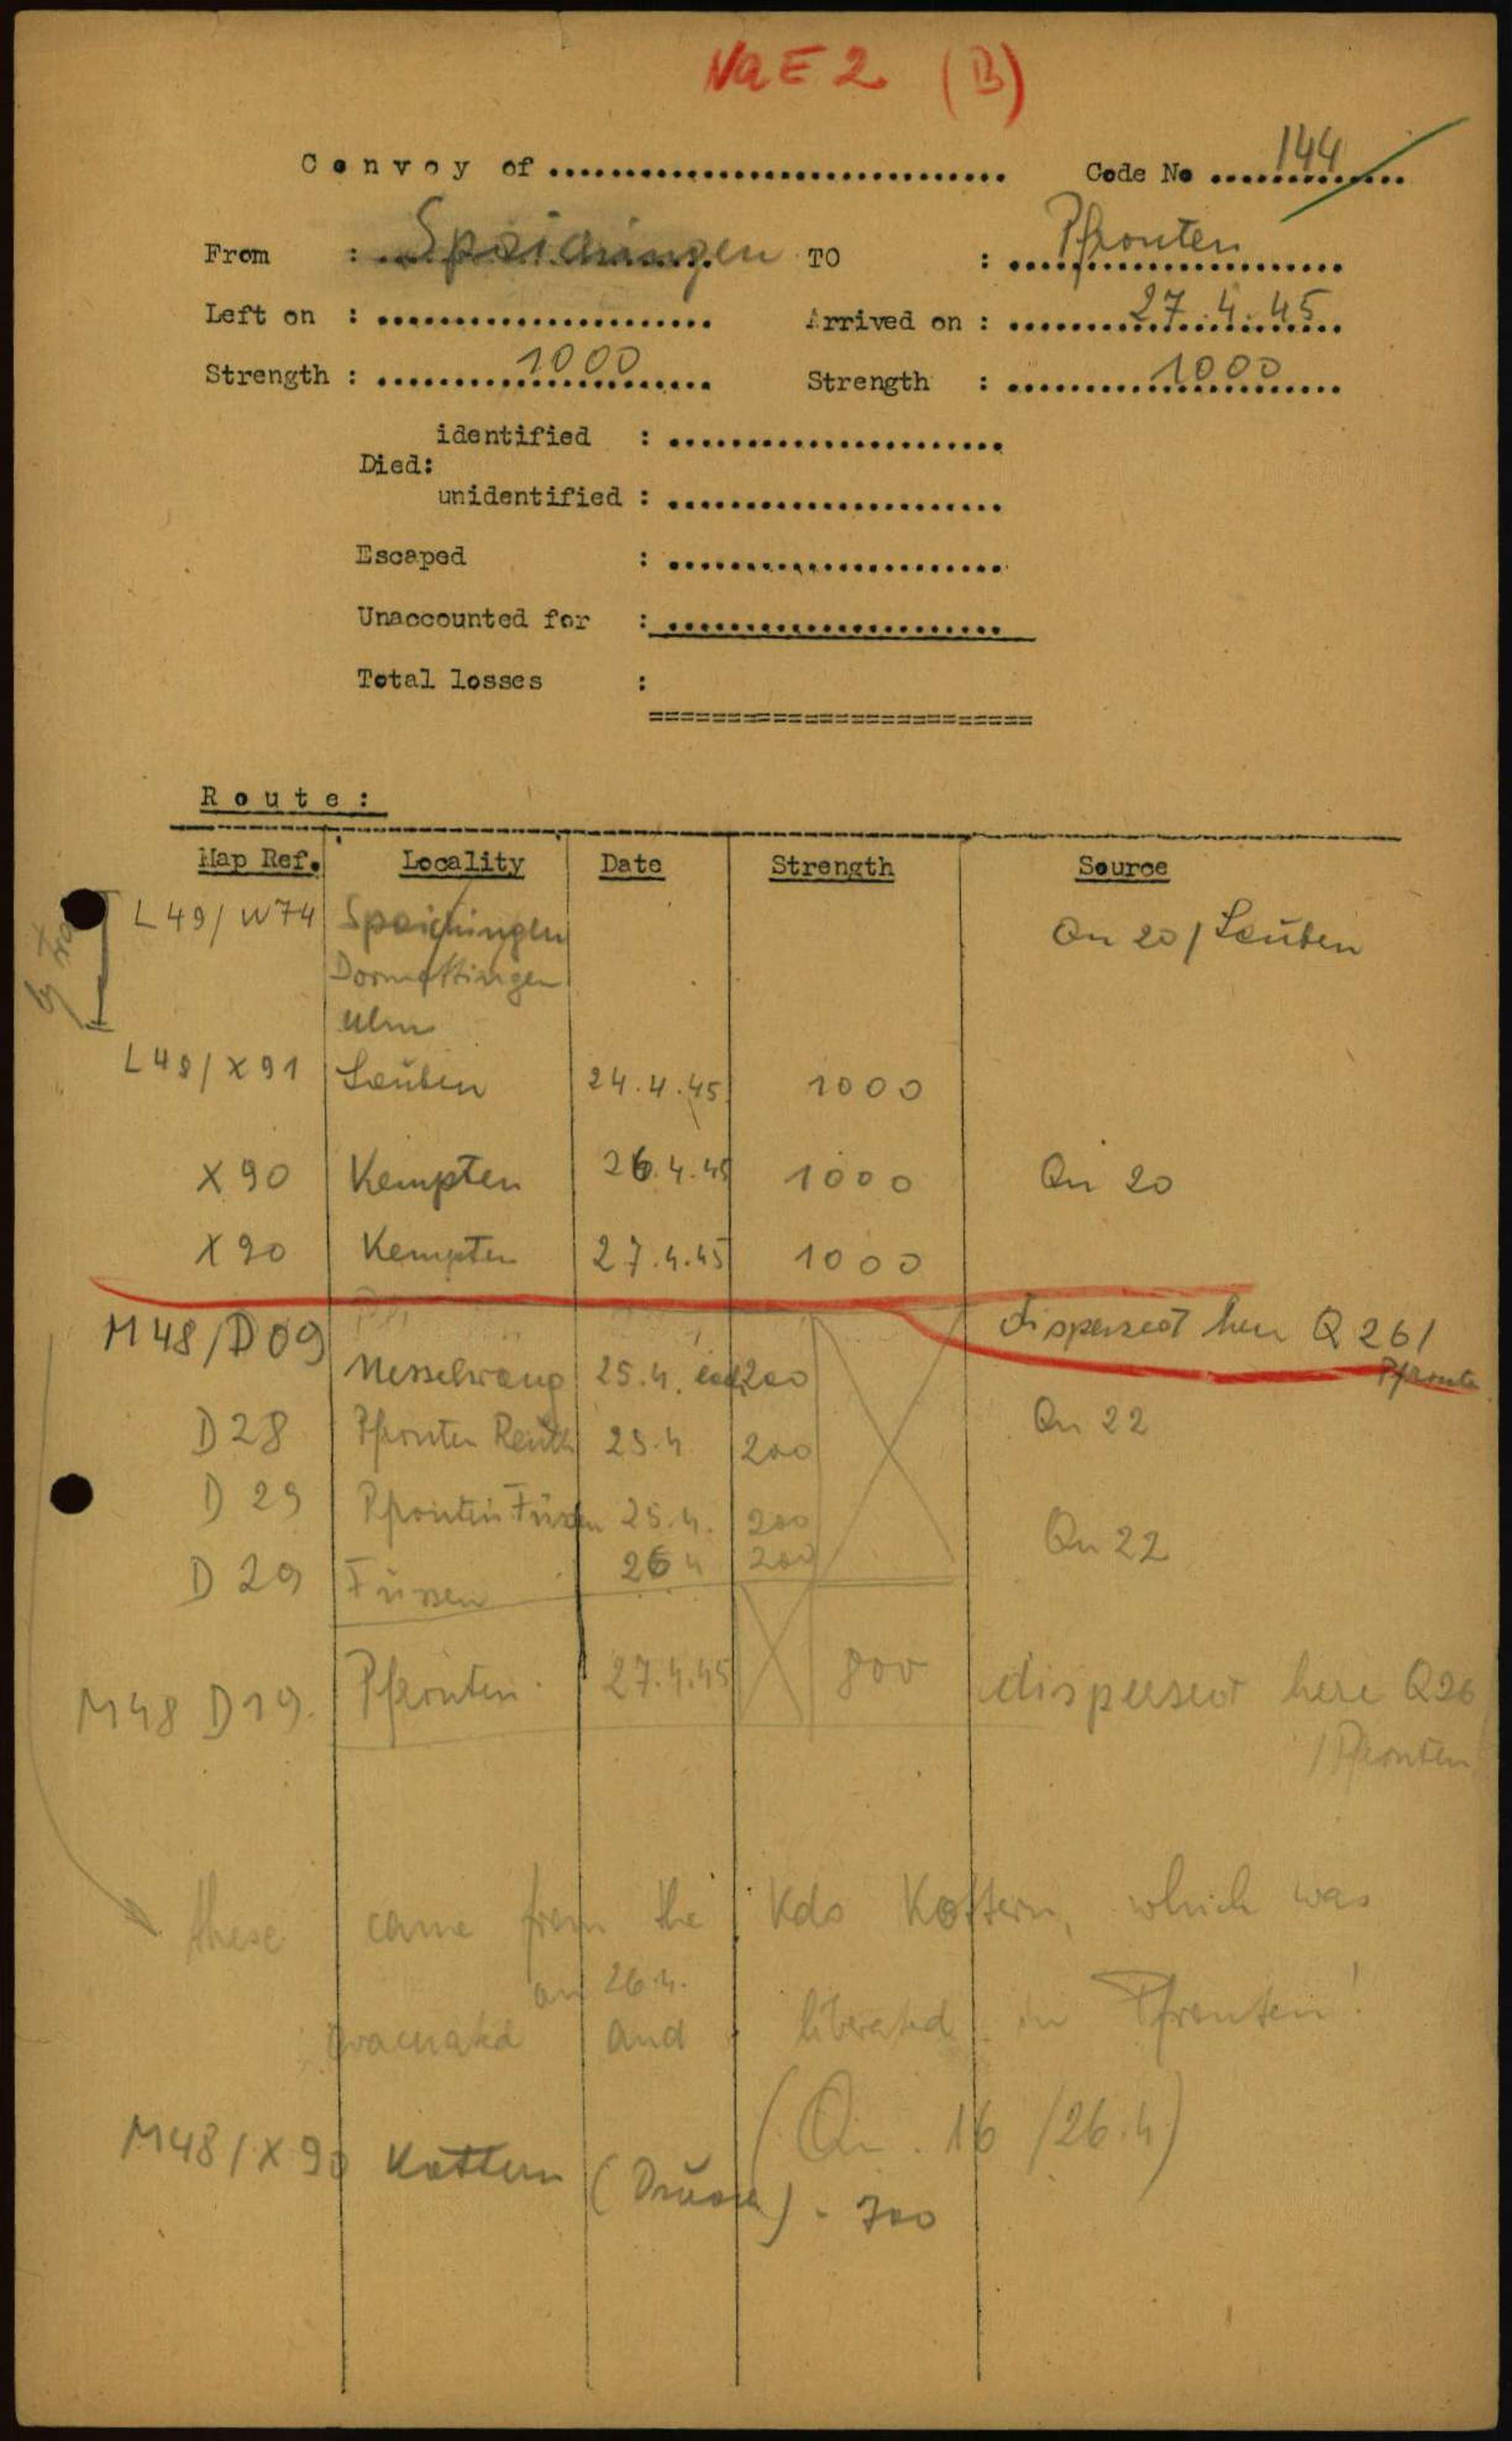 NaE2 (B)
Convoy of .............................. Code No 144
From : Spaichingen TO : Pfronten
Left on : ...................... Arrived on : 27.4.45
Strength : 1000 Strength : 1000
identified : ......................
Died:
unidentified : ......................
Escaped : ......................
Unaccounted for : ......................
Total losses :
=========================
Route:
Map Ref. Locality Date Strength Source
L49/W74 Spaichingen Qu 20/Leuben
Dormettingen
Ulm
L48/X91 Leuben 24.4.45 1000
X90 Kempten 26.4.45 1000 Qu 20
X90 Kempten 27.4.45 1000
dispersed here Q 26/
Pfronte
M48/D09 Nesselwang 25.4. 200
D28 Pfronten Reuth 25.4. 200 Qu 22
D29 Pfronten Füssen 25.4. 200
D29 Füssen 26 4 200 Qu 22
M48 D19. Pfronten 27.4.45 800 dispersed here Q26
/Pfronten
these came from the Kdo Kottern, which was
on 26.4.
evacuated and liberated in Pfronten!
(Qu. 16 /26.4)
M48/X90 Kottern ( ) - 700